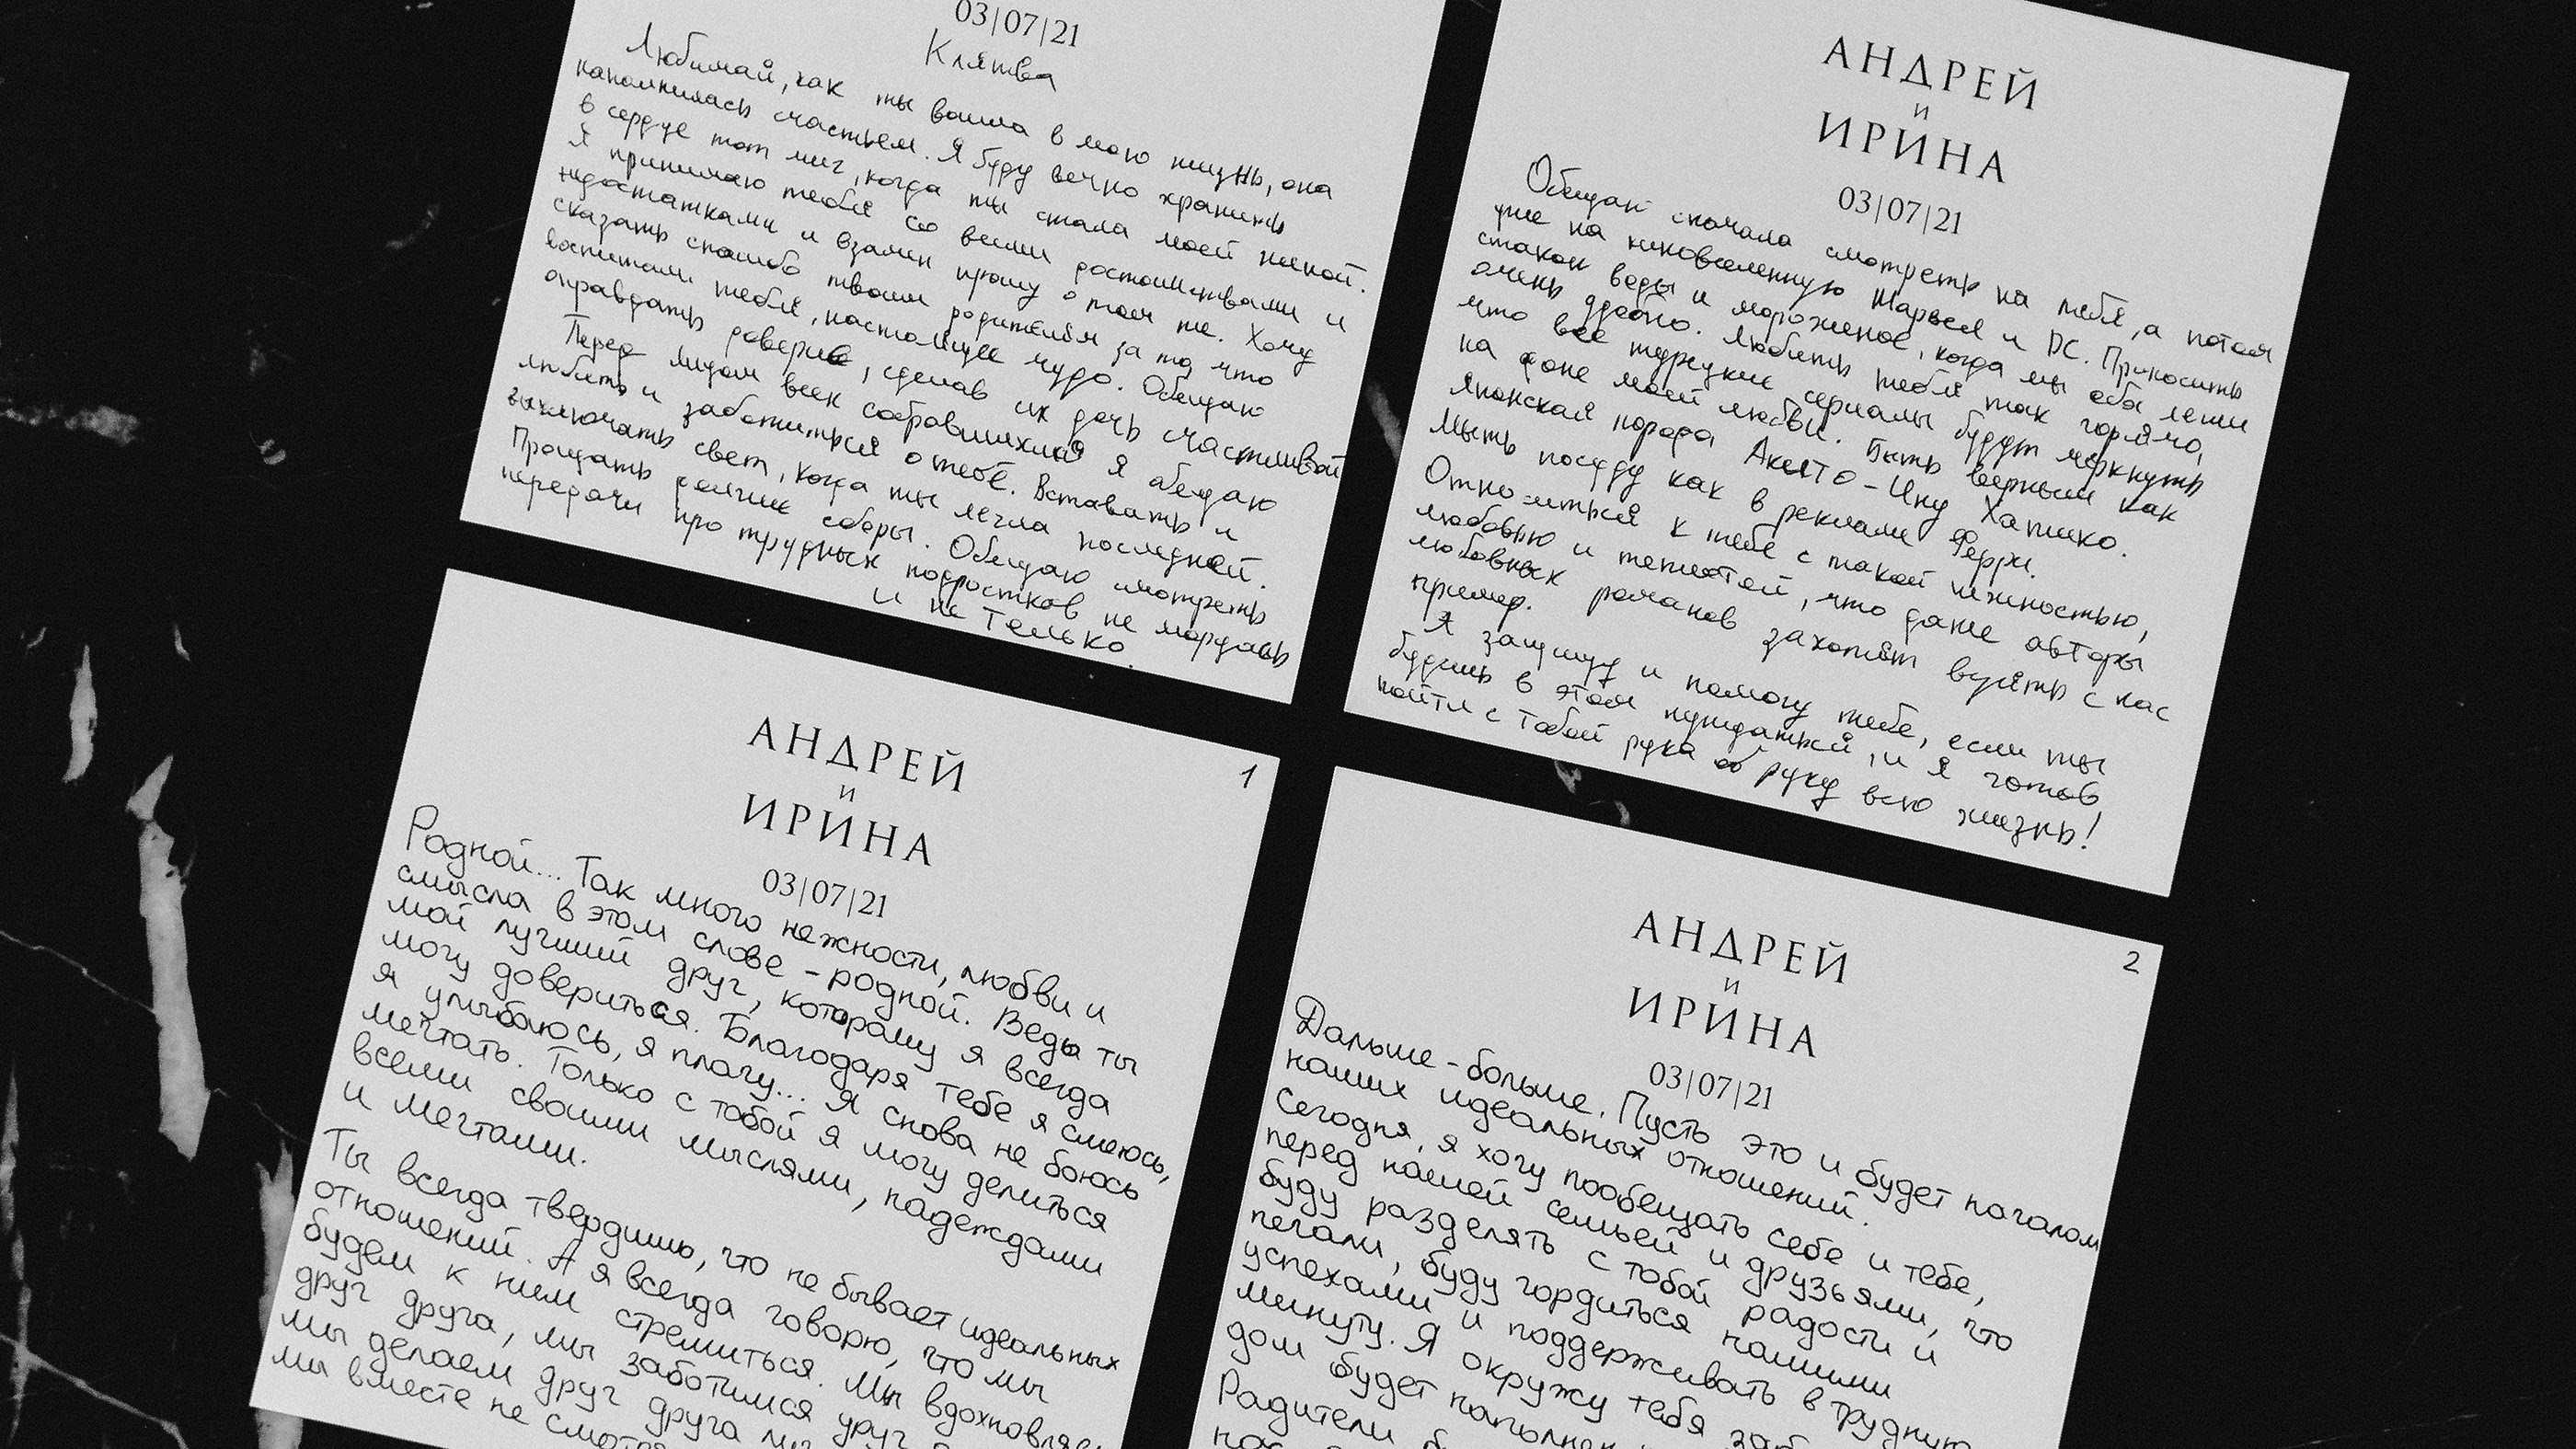 03|07|21
Клятва
Любимай, как ты вошла в мою жизнь, она
наполнилась счастьем. Я буду вечно хранить
в сердце тот миг, когда ты стала моей женой.
Я принимаю тебя со всеми достоинствами и
недостатками и взамен прошу о том же. Хочу
сказать спасибо твоим родителям за то, что
воспитали тебя, настоящее чудо. Обещаю
оправдать доверие, сделав их дочь счастливой
Перед лицом всех собравшихся я обещаю
любить и заботиться о тебе. Вставать и
выключать свет, когда ты легла последней.
Прощать долгие сборы. Обещаю смотреть
передачи про трудных подростков не морщась
и не только.
АНДРЕЙ
и
ИРИНА
03|07|21
Обещаю сначала смотреть на тебя, а потом
уже на киновселенную Марвел и DC. Приносить
стакан воды и мороженое, когда мы оба легли
очень удобно. Любить тебя так горячо,
что все турецкие сериалы будут меркнуть
на фоне моей любви. Быть верным как
японская порода Акито-Ину Хатико.
Мыть посуду как в рекламе Ферри.
Относиться к тебе с такой нежностью,
любовью и теплотой, что даже авторы
любовных романов захотят взять с нас
пример.
Я защищу и помогу тебе, если ты
будешь в этом нуждаться, и я готов
пойти с тобой рука об руку всю жизнь!
АНДРЕЙ
и
ИРИНА
03|07|21
1
Родной... Так много нежности, любви и
смысла в этом слове - родной. Ведь ты
мой лучший друг, которому я всегда
могу довериться. Благодаря тебе я смеюсь,
я улыбаюсь, я плачу... Я снова не боюсь
мечтать. Только с тобой я могу делиться
всеми своими мыслями, надеждами
и мечтами.
Ты всегда твердишь, что не бывает идеальных
отношений. А я всегда говорю, что мы
будем к ним стремиться. Мы вдохновляем
друг друга, мы заботимся друг о
мы делаем друг друга
мы вместе не
АНДРЕЙ
и
ИРИНА
03|07|21
2
Дальше - больше. Пусть это и будет началом
наших идеальных отношений.
Сегодня, я хочу пообещать себе и тебе,
перед нашей семьей и друзьями, что
буду разделять с тобой радости и
печали, буду гордиться нашими
успехами и поддерживать в трудную
минуту. Я окружу тебя
дом будет наполнен
Радители